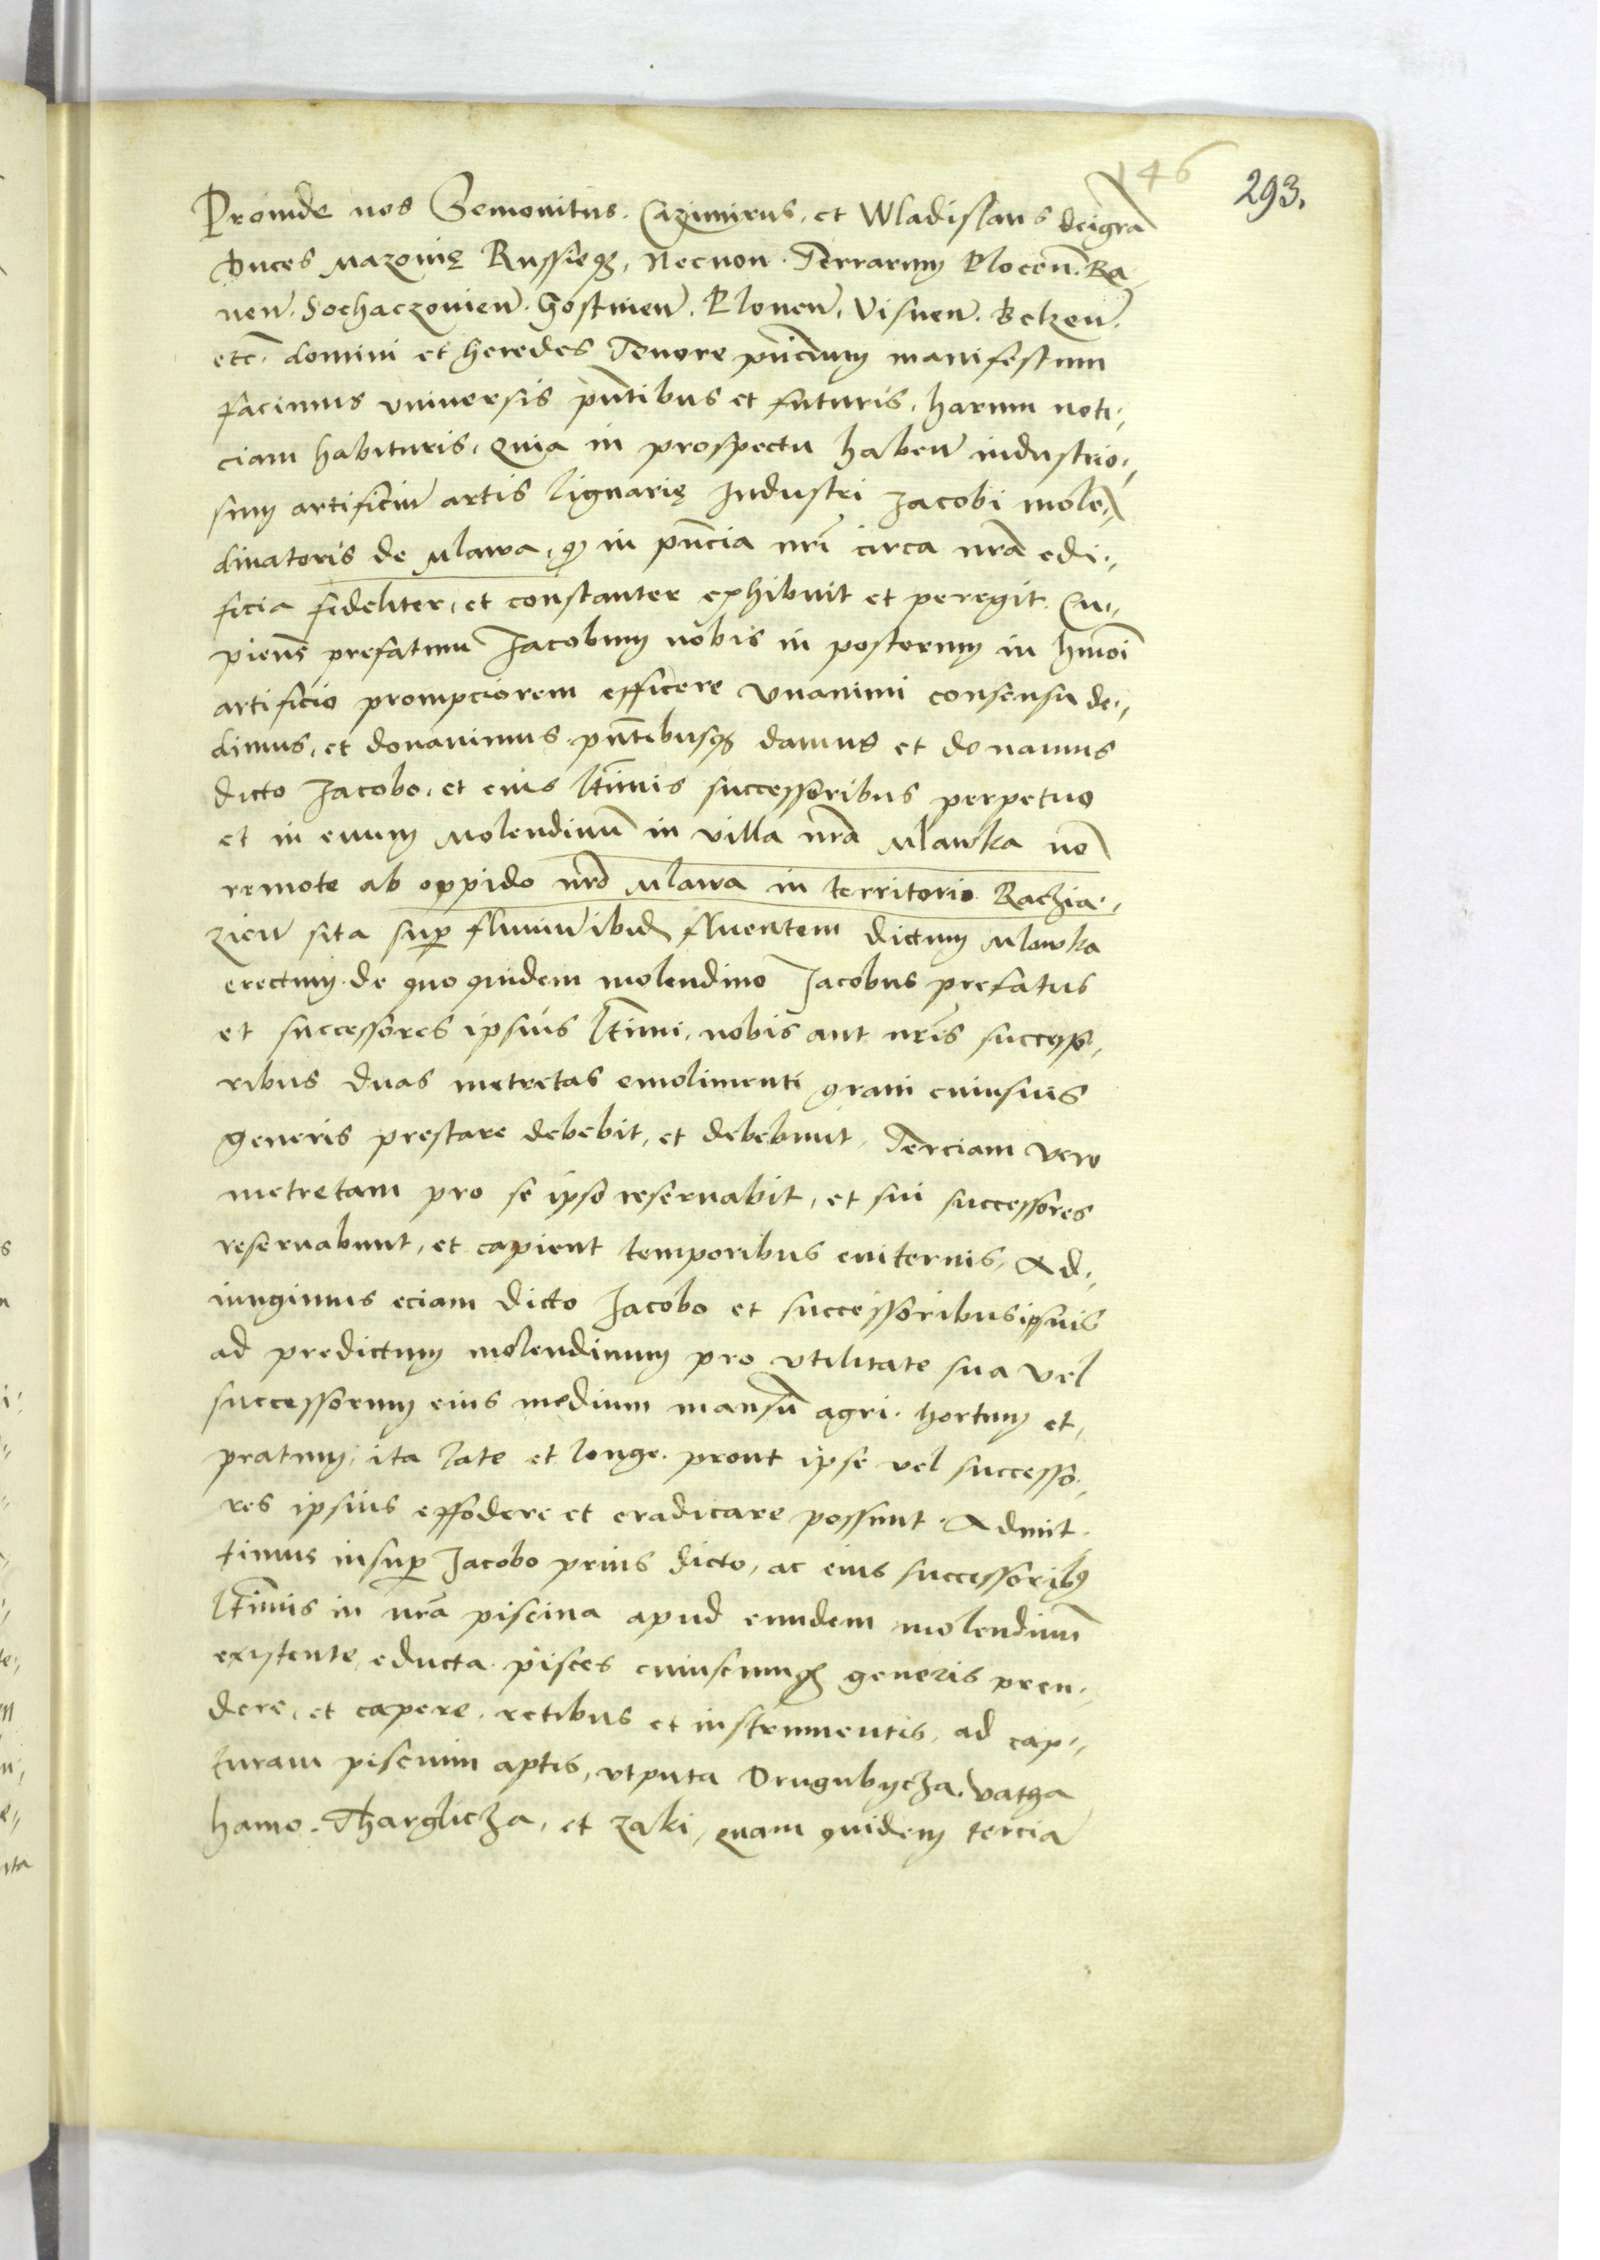 146
293.
Proinde nos Semouitus. Cazimirus, et Wladislaus deigrã
duces Mazouię Russieqꝫ, Necnon Terrarum Plocen̄. Ra-
uen̄. Sochaczouien̄. Gostinen̄. Plonen̄. Visnen̄. Belzen̄.
etc̄. domini et heredes Tenore pn̄cium manifestum
facimus vniuersis pn̄tibus et futuris, harum noti-
ciam habituris, Quia in prospectu haben̄ industrio-
sum artificiũ artis lignarię Industri Jacobi molen-
dinatoris de Mlawa, qꝫ in pn̄cia nrĩ circa nrã edi-
ficia fideliter, et constanter exhibuit et peregit. Cu-
piens prefatum Jacobum nobis in posterum in hmoĩ
artificio prompciorem efficere vnanimi consensu de-
dimus, et donauimus pn̄tibusqꝫ damus et donamus
dicto Jacobo, et eius ltimis successoribus perpetuo
et in euum Molendinũ in villa nrã Mlawka nõ
remote ab oppido nrõ Mlawa in territorio Raczia-
zien̄ sita sup fluuiũ ibidꝫ fluentem dictum Mlowka
erectum. de quo quidem molendino Jacobus prefatus
et successores ipsius ltimi, nobis aut nrĩs successo-
ribus duas metretas emolimenti grani cuiusuis
generis prestare debebit, et debebunt. Terciam vero
metretam pro se ipso reseruabit, et sui successores
reseruabunt, et capient temporibus euiternis, Ad-
iungimus eciam dicto Jacobo et successoribus ipsius
ad predictum molendinum pro vtilitate sua vel
successorum eius medium mansũ agri. hortum et,
pratum, ita late et longe. prout ipse vel successo-
res ipsius effodere et eradicare possunt. Admit-
timus insup Jacobo prius dicto, ac eius successoribꝫ
ltimis in nrã piscina apud eundem molendinũ
existente, educta. pisces cuiuscunqꝫ generis pren-
dere, et capere. retibus et instrumentis, ad cap-
turam piscium aptis, vtputa Drugubycza. vatha
hamo. Tharglicza, et zaki, quam quidem terciã